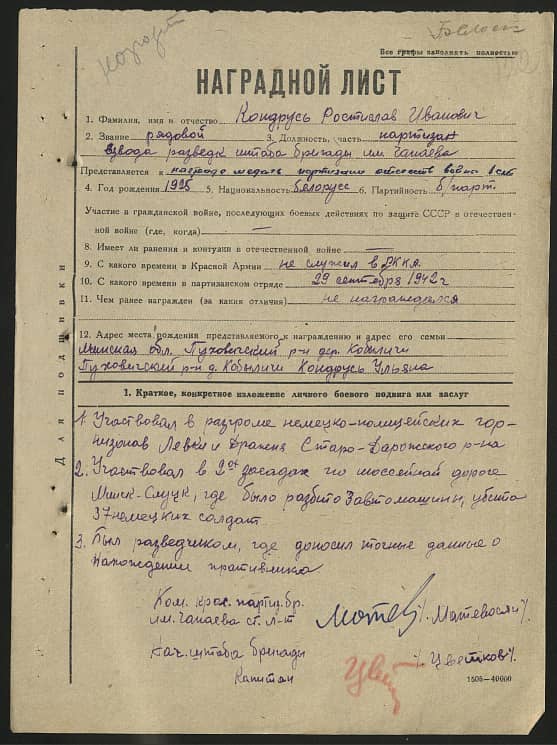 Все графы заполнять полностью
НАГРАДНОЙ ЛИСТ
1. Фамилия, имя и отчество Кондрусь Ростислав Иванович
2. Звание рядовой 3. Должность, часть партизан
взвода разведк штаба бригады им Чапаева
Представляется к награде медаль партизани отечеств войны
4. Год рождения 1925 5. Национальность белорусс 6. Партийность б/парт.
Участие в гражданской войне, последующих боевых действиях по защите СССР в отечествен-
ной войне (где, когда) —
8. Имеет ли ранения и контузии в отечественной войне —
9. С какого времени в Красной Армии не служил в РККА
10. С какого времени в партизанском отряде 29 сентября 1942 г
11. Чем ранее награжден (за какия отличия) не награждался
12. Адрес места рождения представляемого к награждению и адрес его семьи
Минская обл. Пуховичский р-н дер. Кобыличи
Пуховичский р-н д. Кобыличи Кондрусь Ульяна
Для подшивки
1. Краткое, конкретное изложение личного боевого подвига или заслуг
1. Участвовал в разгроме немецко-полицейских гор-
низонов Левки и Дражня Старо-Дарожского р-на
2. Участвовал в 2ух засадах по шоссейной дороге
Минск-Слуцк, где было разбито 3 автомашины, убито
37 немецких солдат
3. Был разведчиком, где доносил точные данные о
нахождении противника
Ком. Крас. партиз. бр.
им. Чапаева ст. л-т /Матевосян/
Нач. штаба бригады /Цветков/
Капитан
1506—40000